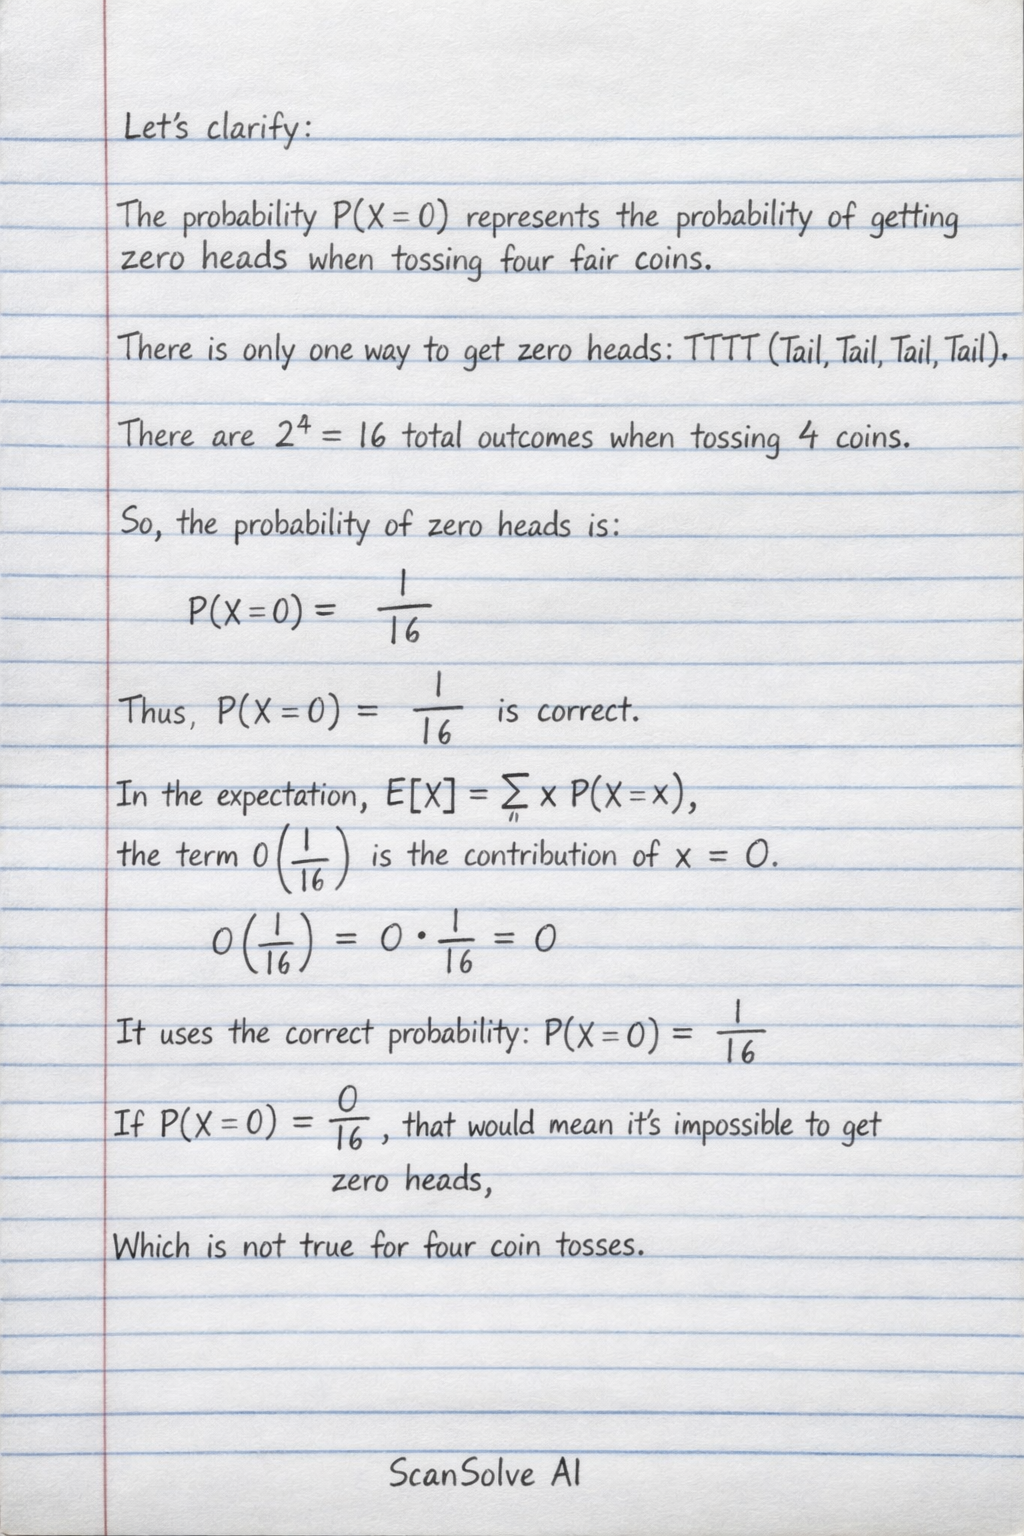 Let's clarify:
The probability P(X = 0) represents the probability of getting
zero heads when tossing four fair coins.
There is only one way to get zero heads: TTTT (Tail, Tail, Tail, Tail).
There are 2⁴ = 16 total outcomes when tossing 4 coins.
So, the probability of zero heads is:
P(X = 0) = 1/16
Thus, P(X = 0) = 1/16 is correct.
In the expectation, E[X] = ∑ x P(X = x),
the term 0(1/16) is the contribution of x = 0.
0(1/16) = 0 · 1/16 = 0
It uses the correct probability: P(X = 0) = 1/16
If P(X = 0) = 0/16, that would mean it's impossible to get
zero heads,
Which is not true for four coin tosses.
ScanSolve AI